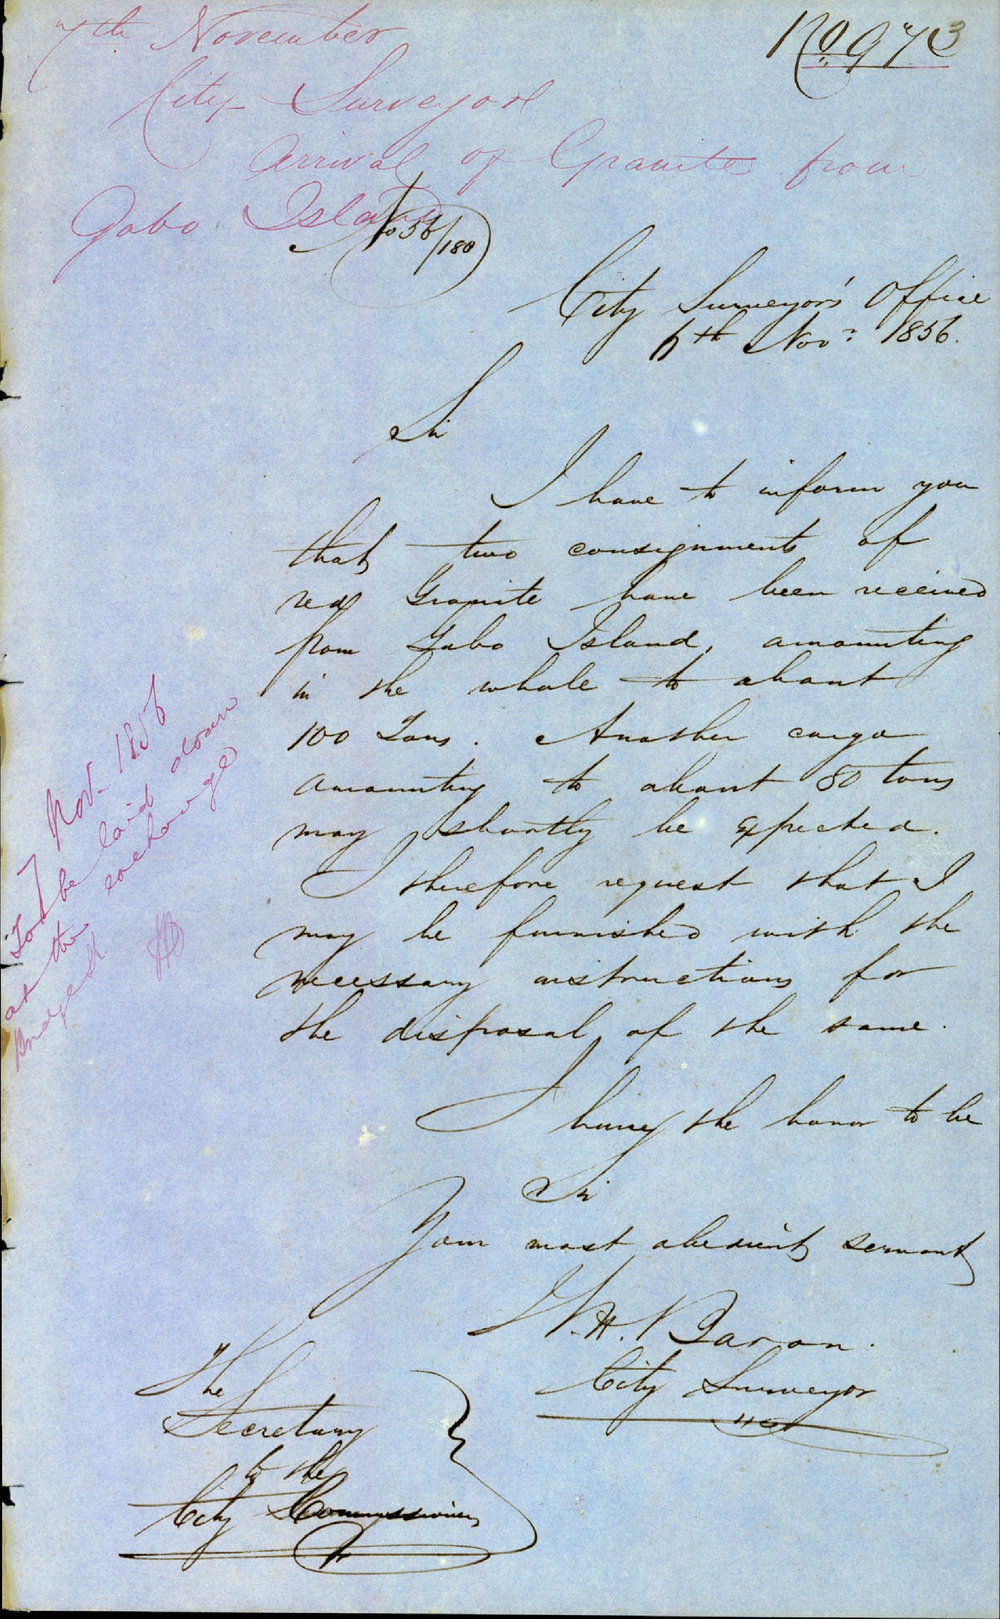 No 973
7th November
City Surveyor
Arrival of Granite from
Gabo Island
No 56/180
City Surveyor's Office
6th Nov: 1856.
Sir
I have to inform you
that two consignments of
red Granite have been received
from Gabo Island, amounting
in the whole to about
100 Tons. Another cargo
amounting to about 80 tons
may shortly be expected.
I therefore request that I
may be furnished with the
necessary instructions for
the disposal of the same.
I have the honor to be
Sir
Your most obedient servant
W. H. Baron.
City Surveyor
The
Secretary
to the
City Commissioners
7 Nov. 1856
To be laid down
at the exchange